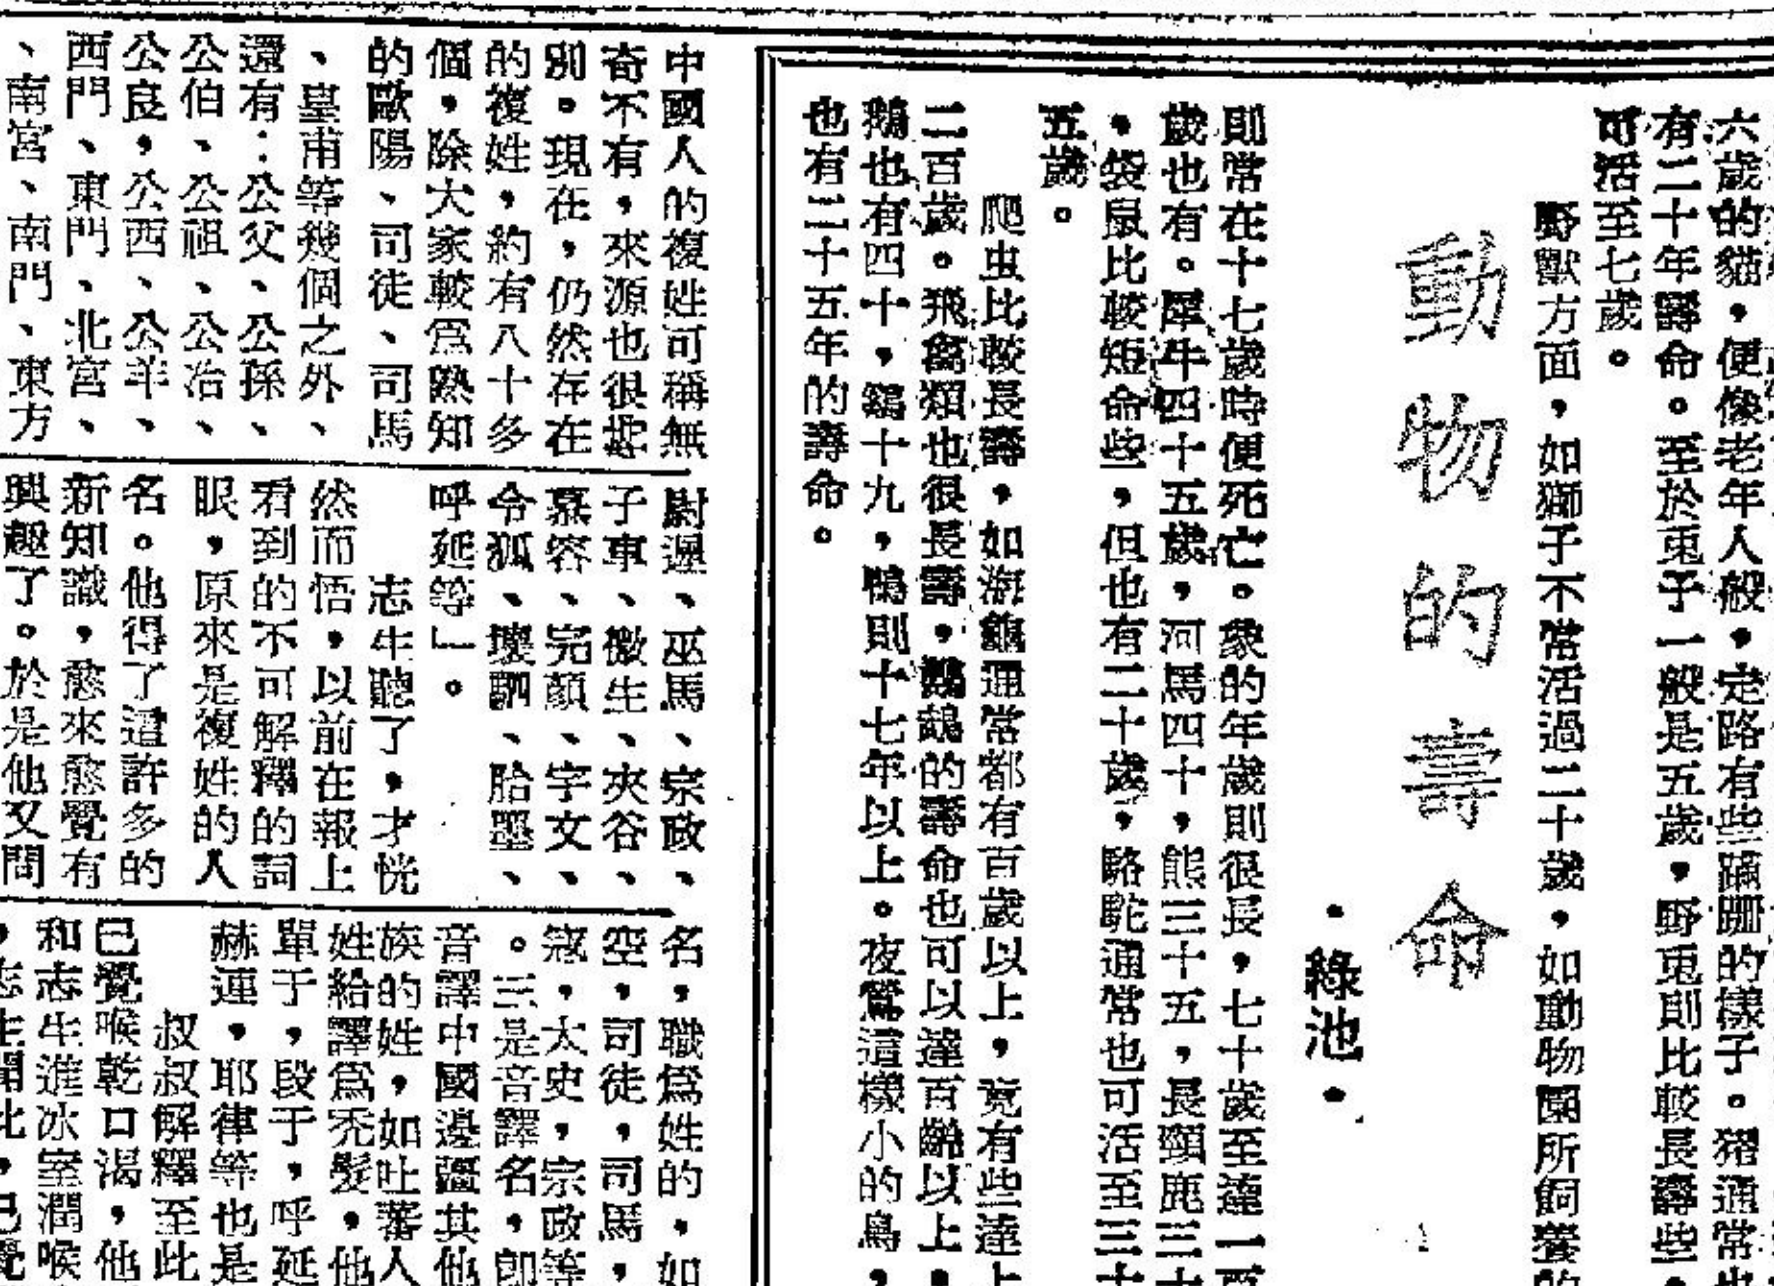 六歲的貓，便像老年人般，走路有些蹣跚的樣子。猪通常也
有二十年壽命。至於兎子一般是五歲，野兎則比較長壽些，
可活至七歲。
野獸方面，如獅子不常活過二十歲，如動物園所飼養的
動物的壽命
・綠池・
則常在十七歲時便死亡。象的年歲則很長，七十歲至達一百
歲也有。犀牛四十五歲，河馬四十，熊三十五，長頸鹿三十
，袋鼠比較短命些，但也有二十歲，駱駝通常也可活至三十
五歲。
爬虫比較長壽，如海龜通常都有百歲以上，竟有些達上
二百歲。飛禽類也很長壽，鸚鵡的壽命也可以達百齡以上，
鵝也有四十，鷄十九，鴨則十七年以上。夜鶯這樣小的鳥，
也有二十五年的壽命。
中國人的複姓可稱無
奇不有，來源也很
別。現在，仍然存在
的複姓，約有八十多
個，除大家較爲熟知
的歐陽、司徒、司馬
、皇甫等幾個之外、
還有：公父、公孫、
公伯、公祖、公冶、
公良，公西、公羊、
西門、東門、北宮、
、南宮、南門、東方
尉遲、巫馬、宗政、
子車、微生、夾谷、
慕容、完顏、宇文、
令狐、壤駟、胎墨、
呼延等」。
志生聽了，才恍
然而悟，以前在報上
看到的不可解釋的詞
眼，原來是複姓的人
名。他得了這許多的
新知識，愈來愈覺有
興趣了。於是他又問
名，職爲姓的，如
空，司徒，司馬，
寇，太史，宗政等
。三是音譯名，卽
音譯中國邊疆其他
族的姓，如吐蕃人
姓給譯爲禿髮，他
單于，段于，呼延
赫連，耶律等也是
叔叔解釋至此
已覺喉乾口渴，他
和志生進冰室潤喉
，志生聞此，已覺